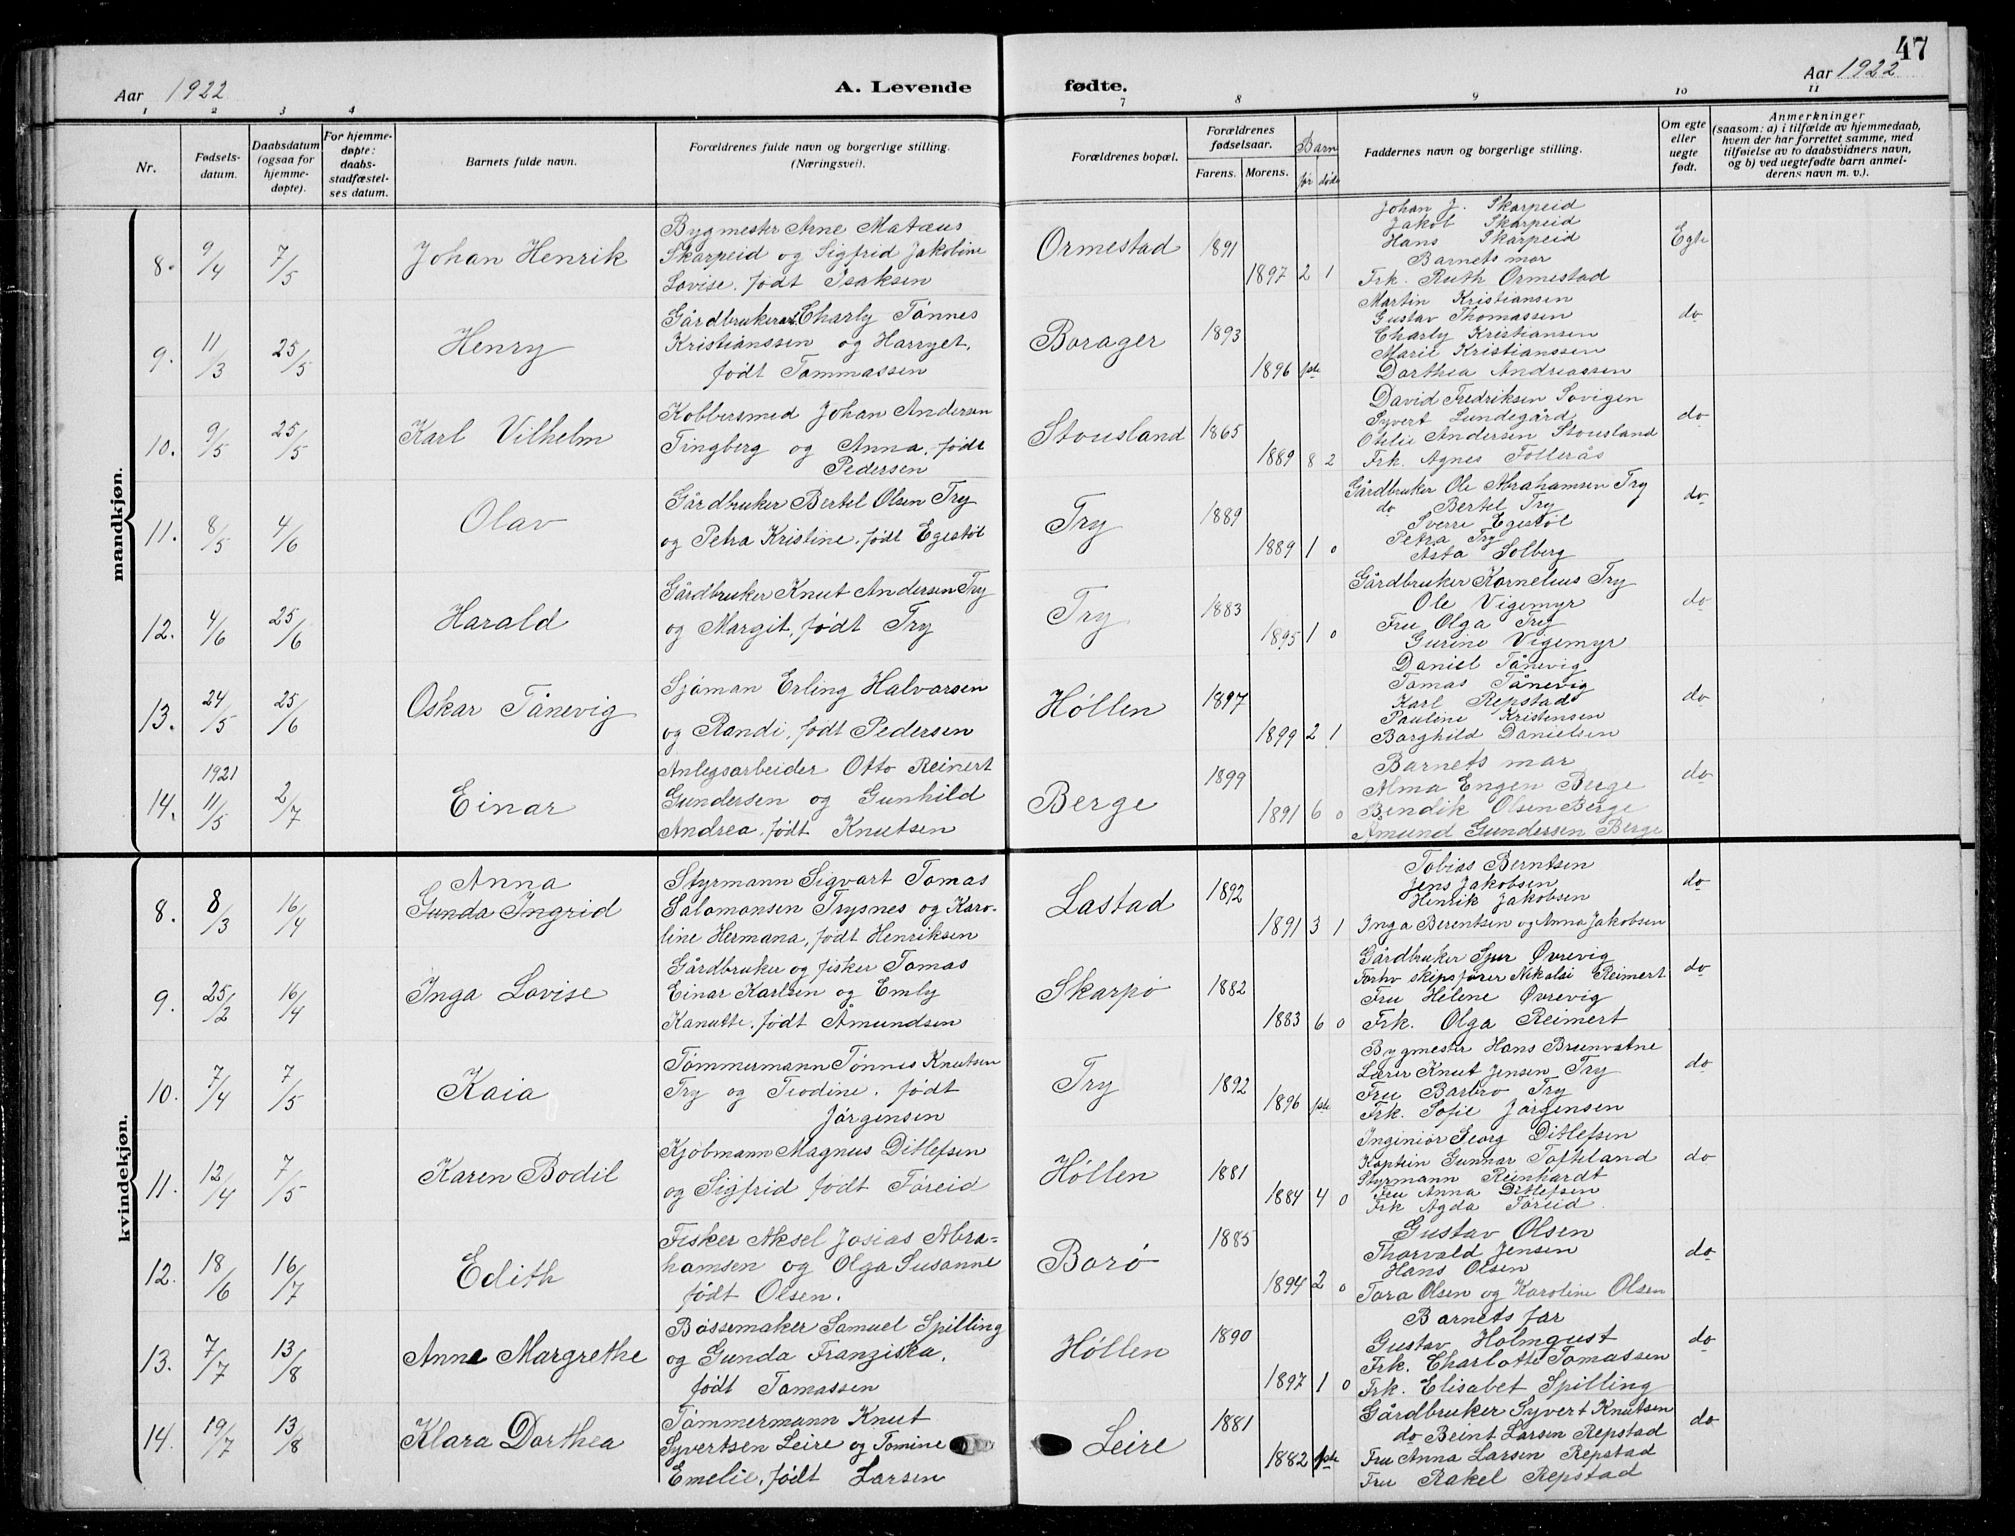 47
Aar 1922
A. Levende
fødte.
Aar 1922
1 2 3 4
7 8 9 10 11
Nr.
Fødsels-
datum.
Daabsdatum
(ogsaa for
hjemme-
døpte).
For hjemme-
døpte:
daabs-
stadfæstel-
ses datum.
Barnets fulde navn.
Forældrenes fulde navn og borgerlige stilling.
(Næringsvei).
Forældrenes bopæl.
Forældrenes
fødselsaar.
Farens. Morens.
Barn
før døde
Faddernes navn og borgerlige stilling.
Om egte
eller
uegte
født.
Anmerkninger
(saasom: a) i tilfælde av hjemmedaab,
hvem der har forrettet samme, med
tilføielse av to daabsvidners navn,
og b) ved uegtefødte barn anmel-
derens navn m. v.).
mandkjøn.
8. 9/4 7/5 Johan Henrik
Bygmester Arne Mataus
Skarpeid og Sigfrid Jakobine
Lovise, født Isaksen
Ormestad 1891 1897 2 1
Johan J. Skarpeid
Jakob Skarpeid
Hans Skarpeid
Barnets mor
Frk. Ruth Ormestad
Egte
9. 11/3 25/5 Henry
Gårdbruker Charly Tønnes
Kristianssen og Harryet,
født Tommassen
Borager 1893 1896 1ste
Martin Kristiansen
Gustav Thomassen
Charly Kristiansen
Marie Kristianssen
Dorthea Andreassen
do
10. 9/5 25/5 Karl Vilhelm
Kobbersmed Johan Andersen
Tingberg og Anna, født
Pedersen
Stousland 1865 1889 8 2
David Fredriksen Sovigen
Syvert Lundegård
Otelie Andersen Stousland
Frk. Agnes Follerås
do
11. 8/5 4/6 Olav
Gårdbruker Bertel Olsen Try
og Petra Kristine, født Egestøl
Try 1889 1889 1 0
Gårdbruker Ole Abrahamsen Try
do Bertel Try
Sverre Egestøl
Petra Try
Asta Solberg
do
12. 4/6 25/6 Harald
Gårdbruker Knut Andersen Try
og Margit, født Try
Try 1883 1895 1 0
Gårdbruker Kornelius Try
Ole Vigemyr
Fru Olga Try
Gurine Vigemyr
do
13. 24/5 25/6 Oskar Tånevig
Sjøman Erling Halvorsen
og Randi, født Pedersen
Høllen 1897 1899 2 1
Daniel Tånevig
Tomas Tånevig
Karl Repstad
Pauline Kristensen
Borghild Danielsen
do
14. 1921 11/5 2/7 Einar
Anlegsarbeider Otto Reinert
Gundersen og Gunhild
Andrea, født Knutsen
Berge 1899 1891 6 0
Barnets mor
Alma Engen Berge
Bendik Olsen Berge
Åmund Gundersen Berge
do
kvindekjøn.
8. 8/3 16/4 Anna
Gunda Ingrid
Styrmann Sigvart Tomas
Salomonsen Trysnes og Karo-
line Hermana, født Henriksen
Lastad 1892 1891 3 1
Tobias Berntsen
Jens Jakobsen
Henrik Jakobsen
Inga Berentsen og Anna Jakobsen
do
9. 25/2 16/4 Inga Lovise
Gårdbruker og fisker Tomas
Einar Karlsen og Emly
Kanutte, født Åmundsen
Skarpø 1882 1883 6 0
Gårdbruker Syver Øvrevig
Forhv skipsfører Nikolai Reimert
Fru Helene Øvrevig
Frk. Olga Reimert
do
10. 7/4 7/5 Kaia
Tømmermann Tønnes Knutsen
Try og Teodine, født
Jørgensen
Try 1892 1896 1ste
Bygmester Hans Brunvatne
Lærer Knut Jensen Try
Fru Barbro Try
Frk. Sofie Jørgensen
do
11. 12/4 7/5 Karen Bodil
Kjøbmann Magnus Ditlefsen
og Sigfrid født Føreid
Høllen 1881 1884 4 0
Inginiør Georg Ditlefsen
Kaptein Gunnar Tofteland
Styrmann Reinhardt
Fru Anna Ditlefsen
Frk Agda Føreid.
do
12. 18/6 16/7 Edith
Fisker Aksel Josias Abra-
hamsen og Olga Susanne
født Olsen.
Borø 1885 1894 2 0
Gustav Olsen
Thorvald Jensen
Hans Olsen
Tora Olsen og Karoline Olsen
do
13. 7/7 13/8 Anna Margrethe
Bøssemaker Samuel Spilling
og Gunda Franziska,
født Tomassen
Høllen 1890 1897 1 0
Barnets far
Gustav Holmqust
Frk. Charlotte Tomassen
Frk. Elisabet Spilling
do
14. 19/7 13/8 Klara Dorthea
Tømmermann Knut
Syvertsen Leire og Tomine
Emelie, født Larsen
Leire 1881 1882 1ste
Gårdbruker Syvert Knutsen
do Beint Larsen Repstad
Fru Anna Larsen Repstad
Fru Rakel Repstad
do